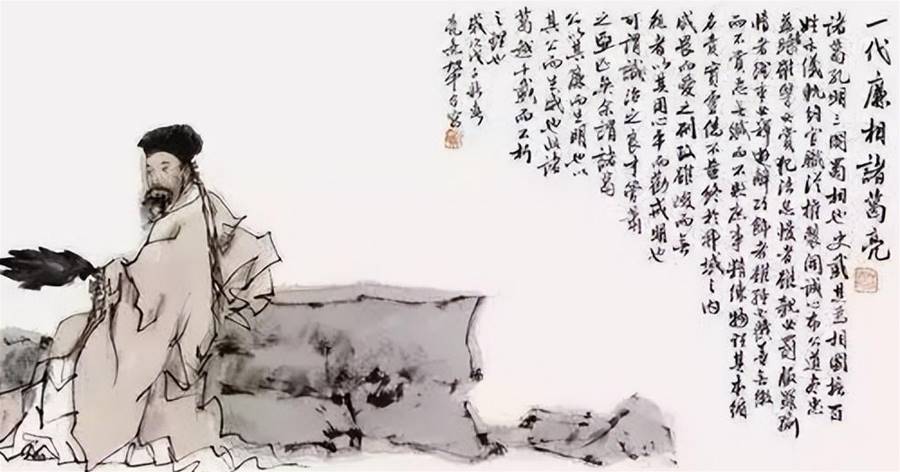 一代廉相諸葛亮
諸葛孔明三國蜀相也史載其為相國撫百
姓示儀軌約官職從權製開誠心布公道盡忠
益時者雖讐必賞犯法怠慢者雖親必罰服罪輸
情者雖重必釋遊辭巧飾者雖輕必戮善無微
而不賞惡無纖而不貶庶事精練物理其本循
名責實虛偽不齒終於邦域之內
咸畏而愛之刑政雖峻而無
怨者以其用心平而勸戒明也
可謂識治之良才管蕭
之亞匹矣余謂諸葛
公以其廉而生明也以
其公而生威也此諸
葛越千載而不朽
之理也
歲次戊子秋